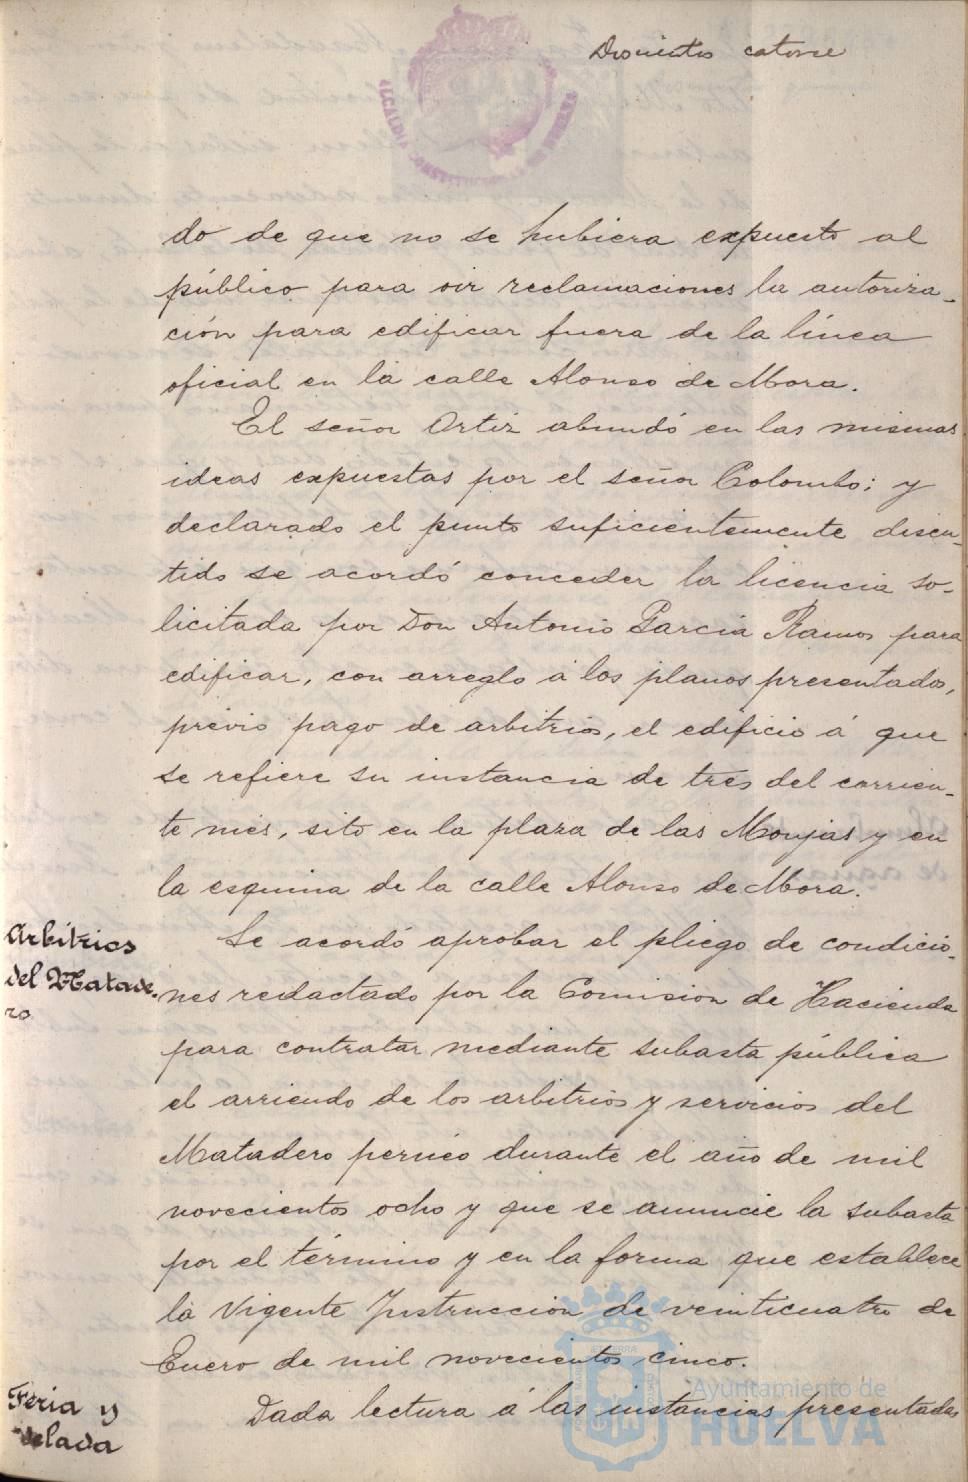 Doscientos catorce
ALCALDIA CONSTITUCIONAL DE HUELVA
do de que no se hubiera expuesto al
público para oir reclamaciones la autoriza-
ción para edificar fuera de la línea
oficial en la calle Alonso de Mora.
El señor Ortiz abundó en las mismas
ideas expuestas por el señor Colombo; y
declarado el punto suficientemente discu-
tido se acordó conceder la licencia so-
licitada por Don Antonio Garcia Ramos para
edificar, con arreglo á los planos presentados,
prévio pago de arbitrios, el edificio á que
se refiere su instancia de tres del corrien-
te mes, sito en la plaza de las Monjas y en
la esquina de la calle Alonso de Mora.
Arbitrios
del Matade-
ro
Se acordó aprobar el pliego de condicio-
nes redactado por la Comision de Hacienda
para contratar mediante subasta pública
el arriendo de los arbitrios y servicios del
Matadero pernéo durante el año de mil
novecientos ocho y que se anuncie la subasta
por el término y en la forma que establece
la vigente Instruccion de veinticuatro de
Enero de mil novecientos cinco.
Feria y
velada
Dada lectura á las instancias presentadas
Ayuntamiento de
HUELVA